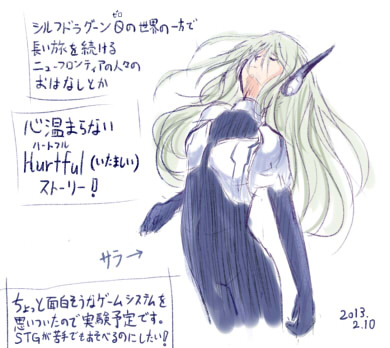 シルフドラグーンゼロの世界の一方で
長い旅を続ける
ニューフロンティアの人々の
おはなしとか
心温まらない
ハートフル
Hurtful(いたましい)
ストーリー!
サラ→
ちょっと面白そうなゲームシステムを
思いついたので実験予定です。
STGが苦手でもあそべるのにしたい!
2013.
2.10